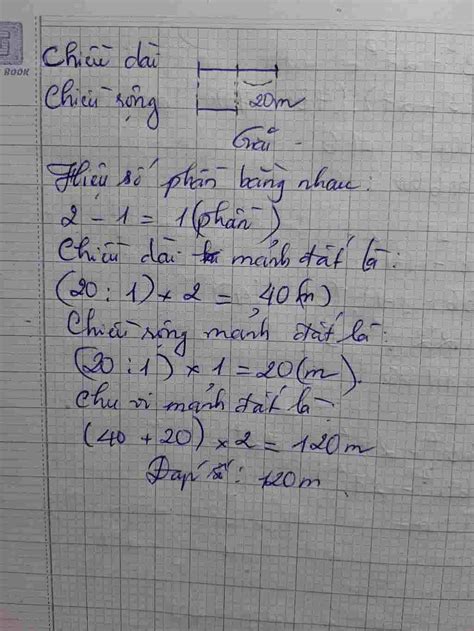 BOOK
Chiều dài
Chiều rộng 20m
Giải
Hiệu số phần bằng nhau:
2 - 1 = 1 (phần)
Chiều dài mảnh đất là:
(20 : 1) × 2 = 40 (m)
Chiều rộng mảnh đất là:
(20 : 1) × 1 = 20 (m).
Chu vi mảnh đất là:
(40 + 20) × 2 = 120m
Đáp số: 120m